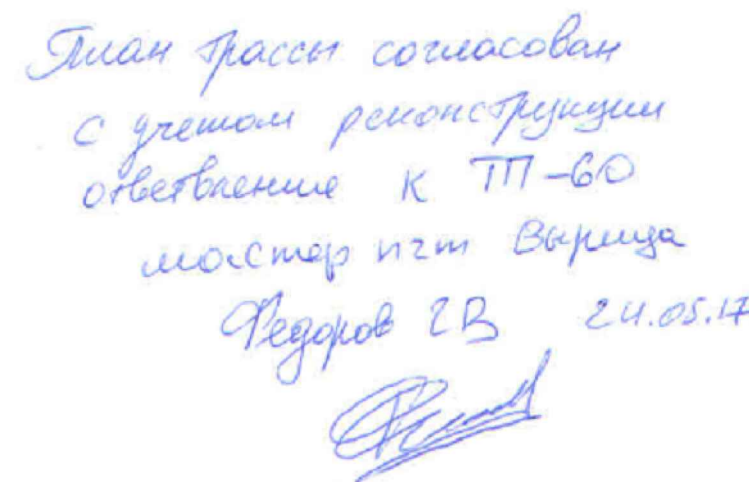 План трассы согласован
с учетом реконструкции
ответвления к ТП-60
мастер пгт Вырица
Федоров ГВ 24.05.17